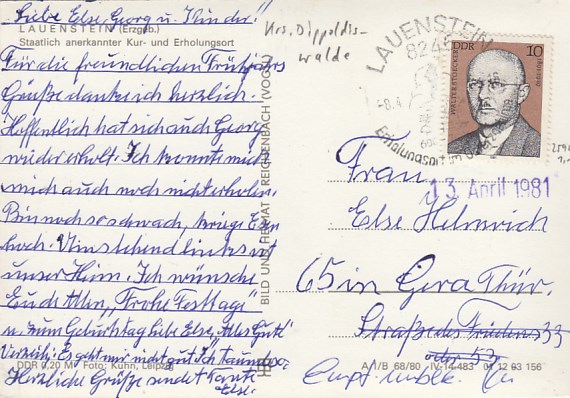 Liebe Else, Georg u. Kinder!
LAUENSTEIN (Erzgeb.)
Staatlich anerkannter Kur- und Erholungsort
Für die freundlichen Frühjahrs
Grüße danke ich herzlich.
Hoffentlich hat sich auch Georg
wieder erholt. Ich konnte mich
mich auch noch nicht erholen.
Bin noch so schwach, kriege kein
hoch. Umstehend links ist
unser Heim. Ich wünsche
Euch Allen "Frohe Festtage"
u. zum Geburtstag liebe Else, Alles Gute"
Verzeih: Es geht nur nicht gut. Ich
Herzliche Grüße sendet Tante
Else.
DDR 0,20 M Foto: Kühn, Leipzig
BILD UND HEIMAT REICHENBACH (VOGTL)
Krs. Dippoldis-
walde
LAUENSTEIN
824
-8.4
Erholungsort
DDR 10
WALTER STOECKER
13. April 1981
Frau
Else Helmrich
65 in Gera Thür.
Straße des Friedens 33
oder 53
A 1/B 68/80 IV-14-483 01 12 03 156